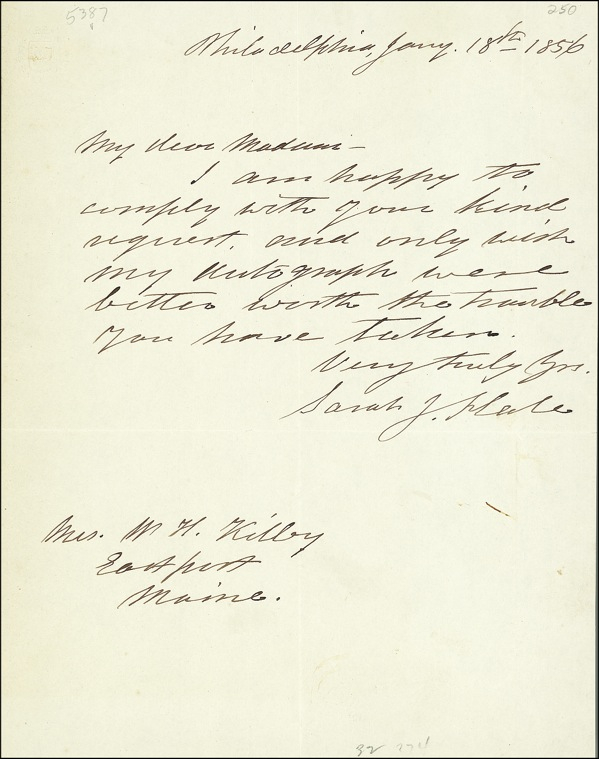 5387
250
Philadelphia, Jany. 18th 1856
My dear Madam—
I am happy to
comply with your kind
request, and only wish
my Autograph were
better worth the trouble
you have taken.
Very truly Yrs.
Sarah J. Hale
Mrs. W H. Kilby
Eastport
Maine.
32